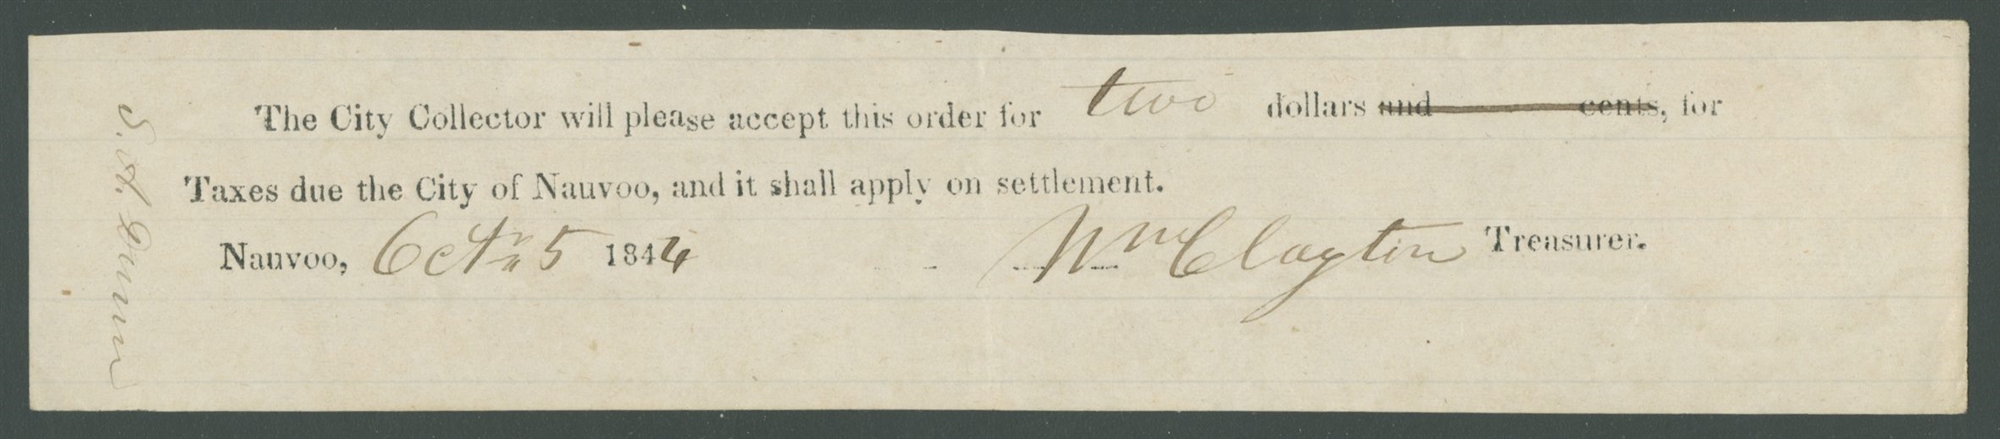 The City Collector will please accept this order for two dollars and cents, for
Taxes due the City of Nauvoo, and it shall apply on settlement.
Nauvoo, Octr 5 1844 Wm Clayton Treasurer.
S. A. Dunn